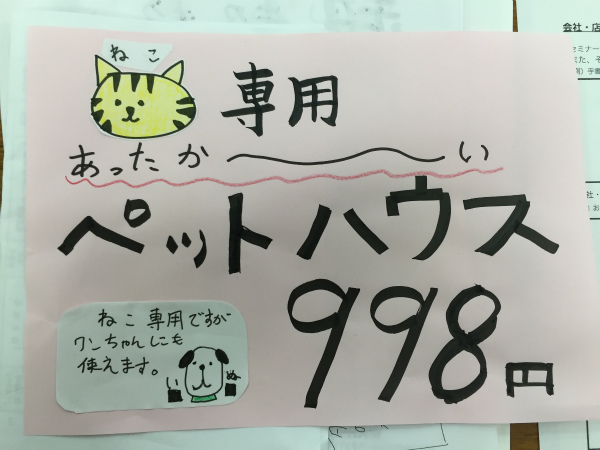 ねこ
専用
あったか〜い
ペットハウス
998円
ねこ専用ですが
ワンちゃんにも
使えます。
いぬ
会社・店
セミナー